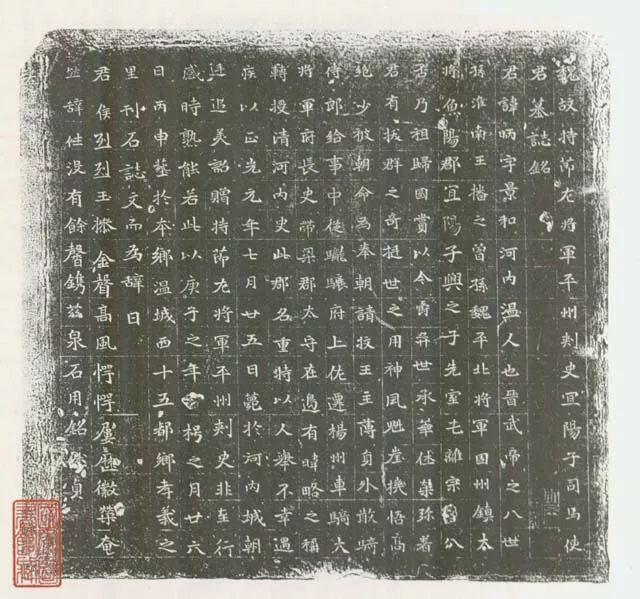 魏故持節左將軍平州刺史宜陽子司馬使
君墓誌銘
君諱昞字景和河內溫人也晉武帝之八世
孫淮南王播之曾孫魏平北將軍固州鎮大
將魚陽郡宜陽子興之子先室屯離宗公
若乃祖歸國賞以今爵弈世承華休榮弥著
君有拔群之奇挺世之用神風魁崖機悟高
絕少被朝命為奉朝請牧王主薄員外散騎
侍郎給事中從驤府上佐遷楊州車騎大
將軍府長史帶梁郡太守在邊有暐略之稱
轉授清河內史此郡名重特以人舉不幸遇
疾以正光元年七月廿五日薨於河內城朝
廷追美詔贈持節左將軍平州刺史非至行
感時熟能若此以庚子之年玄枵之月廿六
日丙申葬於本鄉溫城西十五都鄉孝義之
里刊石誌文而為辭曰
君侯烈烈玉操金聲高風愕愕屢歷徽榮奄
然辭世沒有餘馨鐫茲泉石用銘休貞